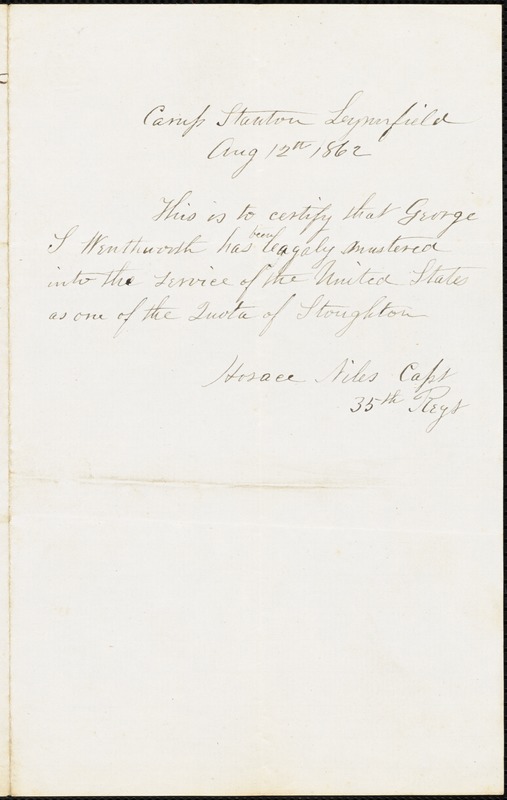 Camp Stanton Lynnfield
Aug 12th 1862
This is to certify that George
S Wenthworth has been leagaly mustered
into the service of the United States
as one of the Quota of Stoughton
Horace Niles Capt
35th Regt